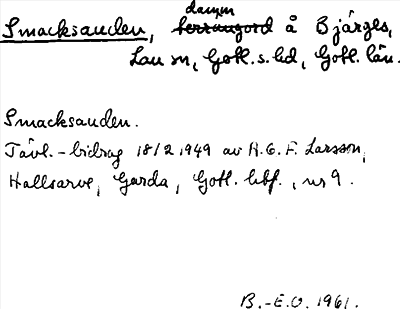 damm
Smacksauden, terrängord å Bjärges,
Lau sn, Gotl. s. hd, Gotl. län.
Smacksauden.
Tävl.-bidrag 18/2 1949 av H.G.F. Larsson,
Hallsarve, Garda, Gotl. hbf., nr 9.
B.-E.O. 1961.